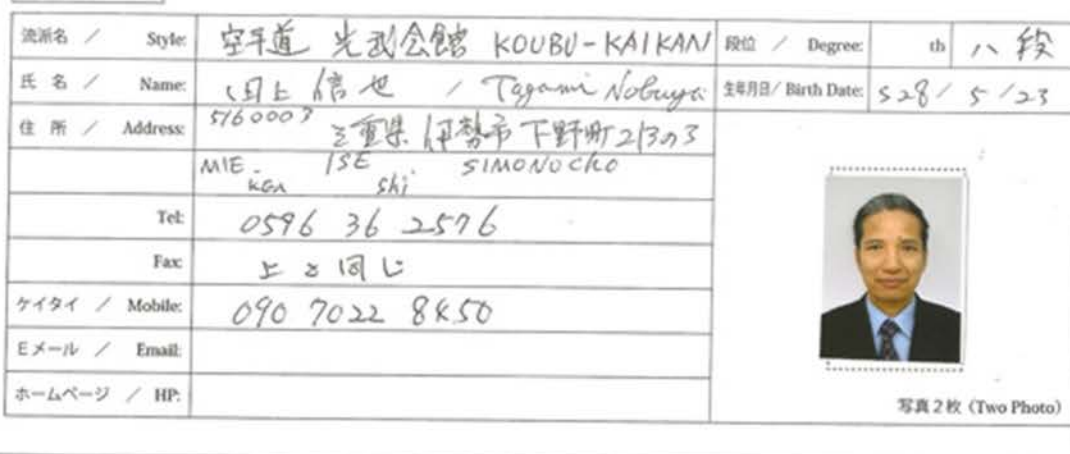 流派名 / Style: 空手道 光武会館 KOUBU-KAIKAN 段位 / Degree: th 八段
氏名 / Name: 田上 信也 / Tagami Nobuya 生年月日 / Birth Date: S28 / 5 / 23
住所 / Address: 5160003 三重県 伊勢市 下野町213の3
MIE-ken ISE shi SIMONOCHO
Tel: 0596 36 2576
Fax: 上と同じ
ケイタイ / Mobile: 090 7022 8450
Eメール / Email:
ホームページ / HP:
写真2枚 (Two Photo)